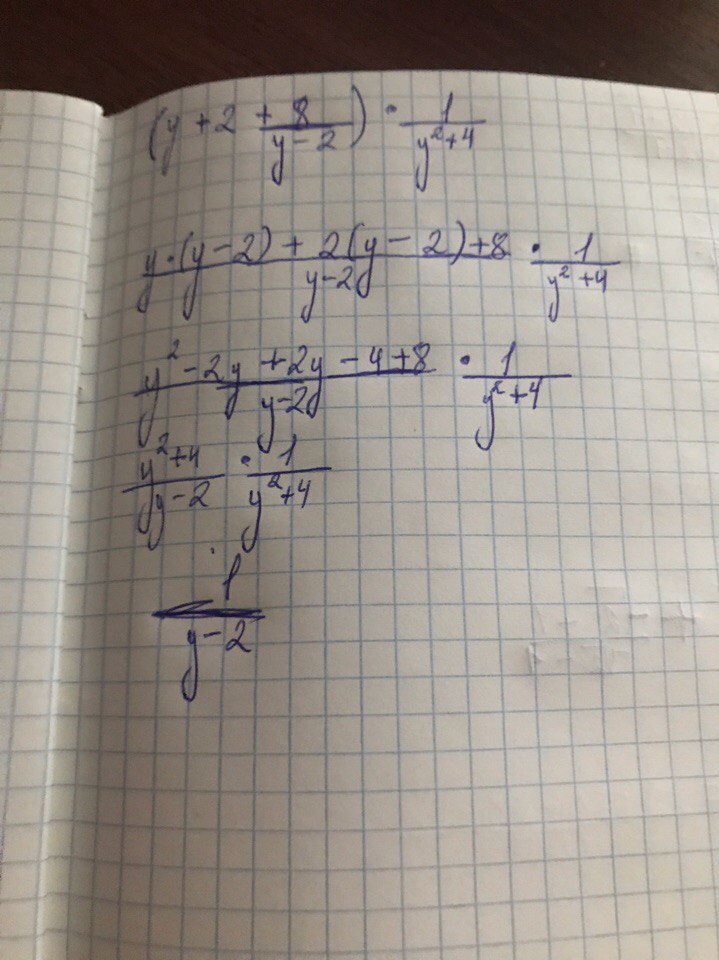 (y + 2 + 8/(y - 2)) · 1/(y² + 4)
(y · (y - 2) + 2(y - 2) + 8)/(y - 2) · 1/(y² + 4)
(y² - 2y + 2y - 4 + 8)/(y - 2) · 1/(y² + 4)
(y² + 4)/(y - 2) · 1/(y² + 4)
1/(y - 2)